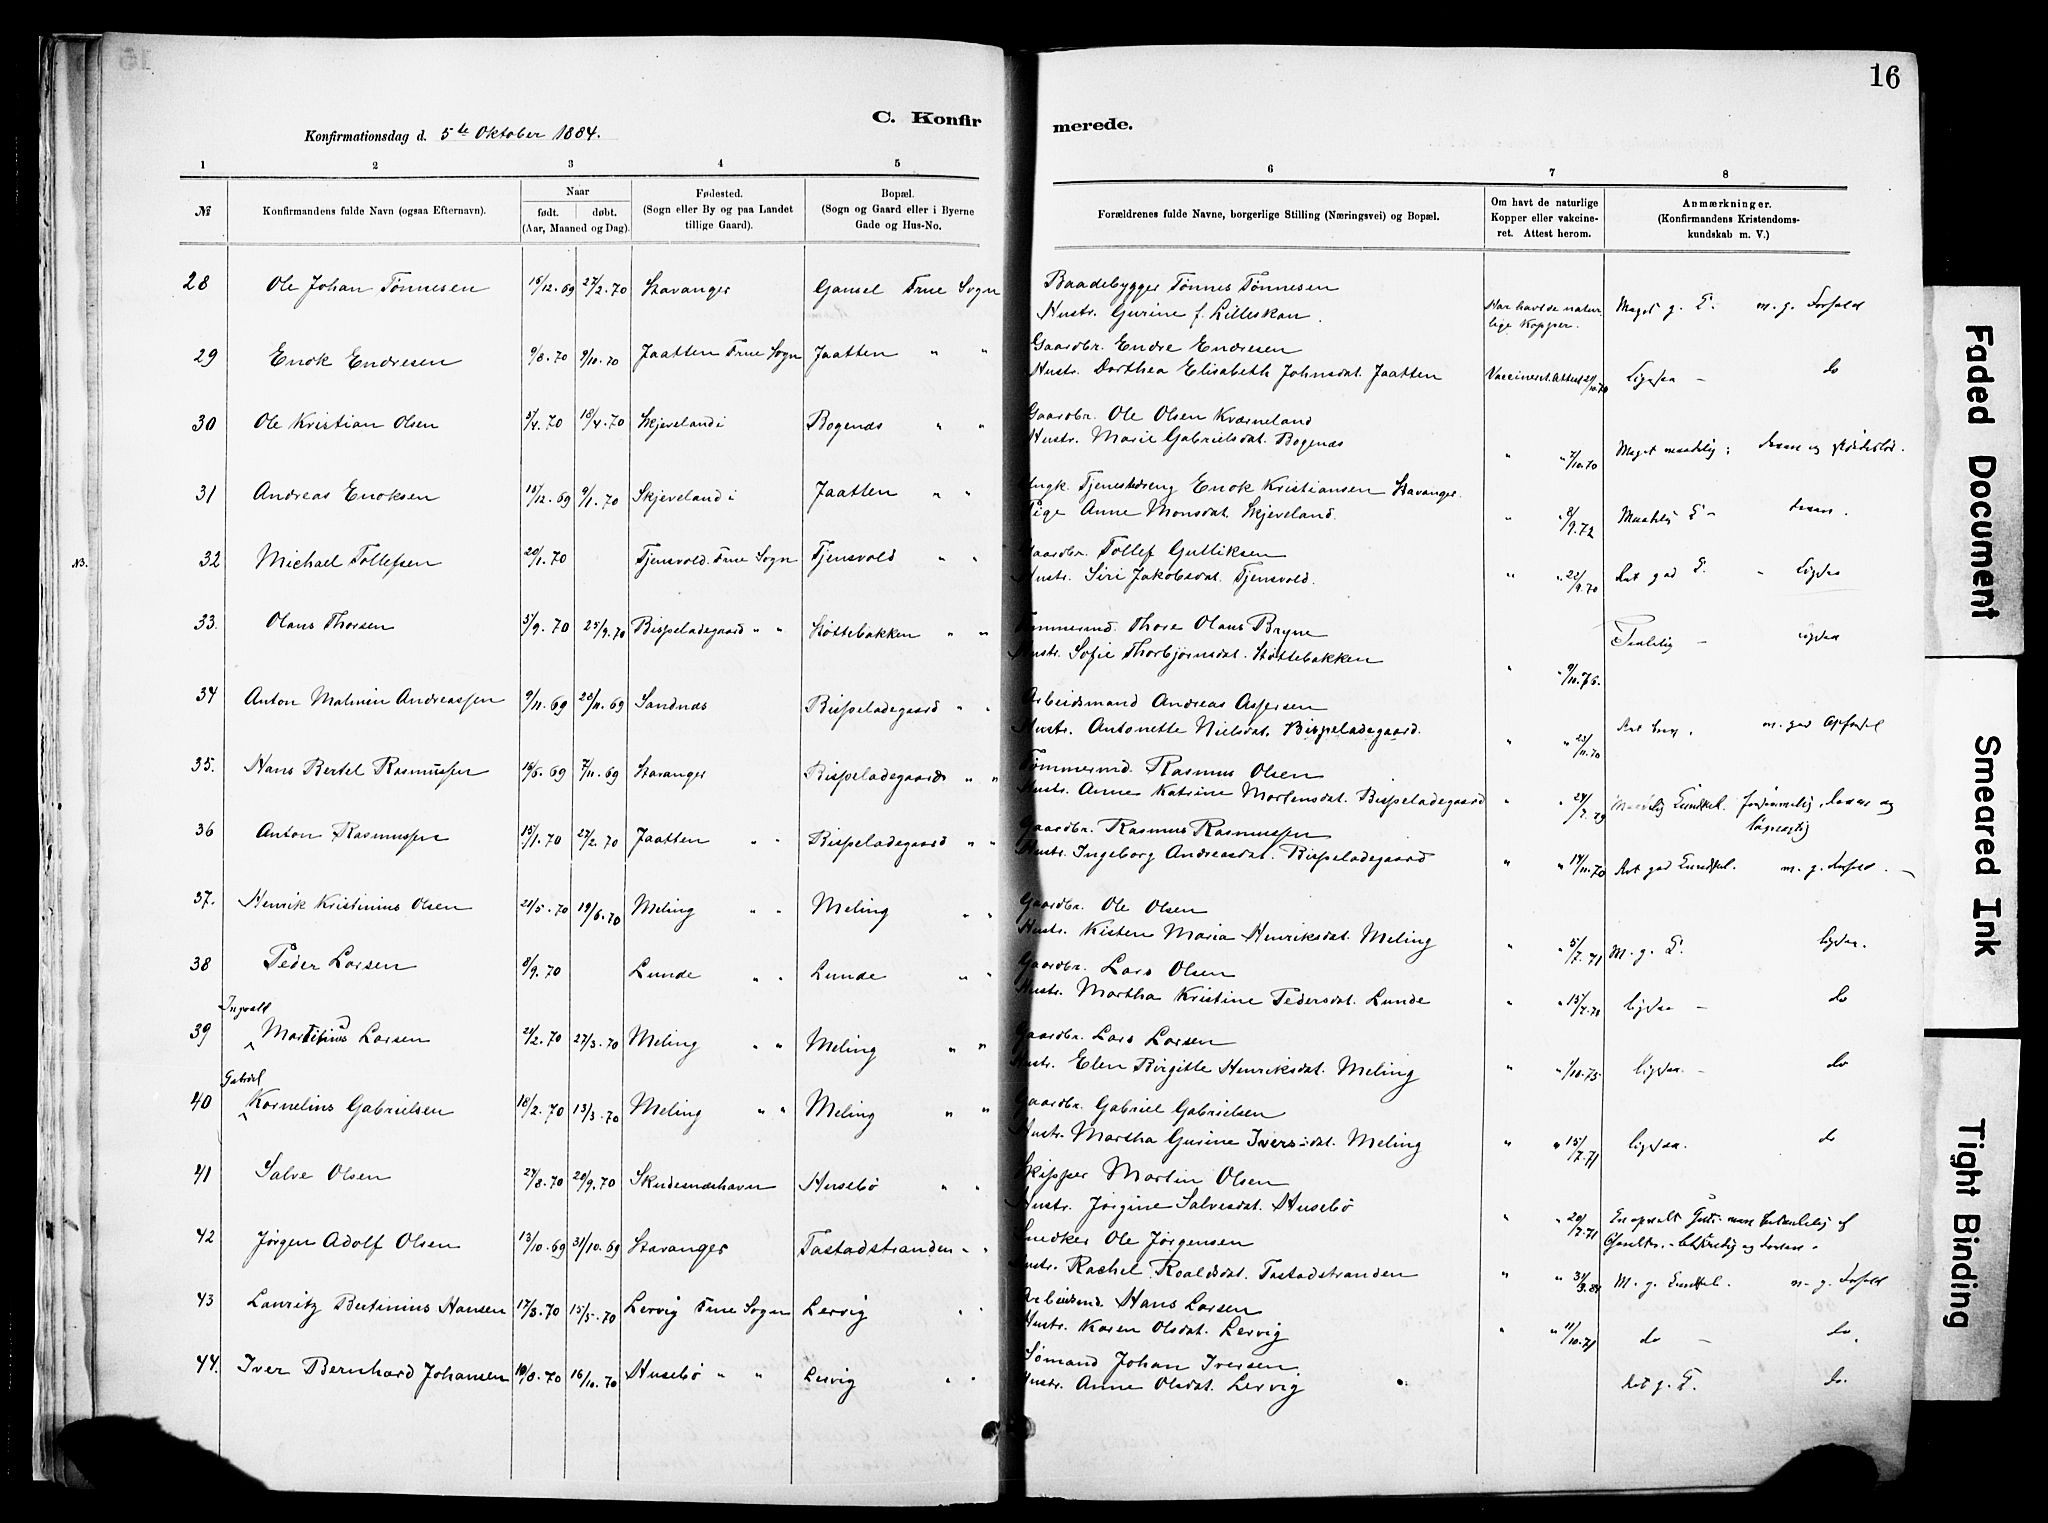 16
C. Konfirmerede.
Konfirmationsdag d. 5te Oktober 1884.
1 2 3 4 5 6 7 8
№ Konfirmandens fulde Navn (ogsaa Efternavn). Naar født. døbt. (Aar, Maaned og Dag). Fødested. (Sogn eller By og paa Landet tillige Gaard). Bopæl. (Sogn og Gaard eller i Byerne Gade og Hus-No. Forældrenes fulde Navne, borgerlige Stilling (Næringsvei) og Bopæl. Om havt de naturlige Kopper eller vakcineret. Attest herom. Anmærkninger. (Konfirmandens Kristendomskundskab m. V.)
28 Ole Johan Tønnesen 15/12.69 27/2.70 Stavanger Gausel Frue Sogn Baadebygger Tønnes Tønnesen
Hustr. Gurine f. Lilleskan. Har havt de naturlige Kopper. Meget g. m. g. Forhold
29 Enok Endresen 9/8.70 9/10.70 Jaatten Frue Sogn Jaatten " " Gaardbr. Endre Endresen
Hustr. Dorthea Elisabeth Johnsdat. Jaatten Vaccineret. Attest Ligesaa - do
30 Ole Kristian Olsen 5/4.70 18/4.70 Skjeveland i Bogenæs " " Gaardbr. Ole Olsen Kværneland
Hustr. Marie Gabrielsdat. Bogenæs " " 7/10.70 Meget maadelig;
31 Andreas Enoksen 15/12.69 9/1.70 Skjeveland i Jaatten " " Ungk. Tjenestedreng Enok Kristiansen Stavanger.
Pige Anne Monsdat. Skjeveland. " " 8/9.72
N3. 32 Michael Tollefsen 20/1.70 Tjensvold. Frue Sogn Tjensvold " " Gaardbr. Tollef Gulliksen
Hustr. Siri Jakobsdat. Tjensvold. " " 22/9.70 Ret god " Ligesaa
33. Olaus Thorsen 3/9.70 25/9.70 Bispeladegaard " " Støttebakken " " Tømmermd. Thore Olaus Bryne
Hustr. Sofie Thorbjørnsdat. Støttebakken " " 9/11.76. Taalelig - ligesaa
34 Anton Malmin Andreassen 9/11.69 28/11.69 Sandnæs Bispeladegaard " " Arbeidsmand Andreas Aspersen
Hustr. Antonette Nielsdat. Bispeladegaard. " " 23/11.70 m. god Opførsel
35. Hans Bertel Rasmussen 16/6.69 7/11.69 Stavanger Bispeladegaard " " Tømmermd. Rasmus Olsen
Hustr. Anne Katrine Mortensdat. Bispeladegaard " " 24/7.79
36 Anton Rasmussen 15/1.70 27/2.70 Jaatten " " Bispeladegaard " " Gaardbr. Rasmus Rasmussen
Hustr. Ingeborg Andreasdat. Bispeladegaard " " 14/11.70 Ret god Kundskab. m. g. Forhold. -
37. Henrik Kristinius Olsen 21/5.70 19/6.70 Meling " " Meling " " Gaardbr. Ole Olsen
Hustr. Kisten Maria Henriksdat. Meling " " 5/7.71 M. g. ligesaa.
38 Peder Larsen 8/9.70 Lunde " " Lunde " " Gaardbr. Lars Olsen
Hustr. Martha Kristine Pedersdat. Lunde " " 15/7.71 ligesaa - do
Ingvald
39 Martinius Larsen 21/2.70 27/3.70 Meling " " Meling " " Gaardbr. Lars Larsen
Hustr. Elen Birgitte Henriksdat. Meling " " 1/10.75 ligesaa. - do
Gabriel
40 Kornelius Gabrielsen 18/2.70 13/3.70 Meling " " Meling " " Gaardbr. Gabriel Gabrielsen
Hustr. Martha Gurine Iversdat. Meling " " 15/7.71 ligesaa. do
41 Salve Olsen 27/8.70 20/9.70 Skudesnæshavn Husebø " " Skipper Martin Olsen
Hustr. Jørgine Salvesdat. Husebø " " 20/7.71
42 Jørgen Adolf Olsen 13/10.69 31/10.69 Stavanger Tastadstranden " " Snedker Ole Jørgensen
Hustr. Rachel Roaldsdat. Tastadstranden " " 31/3.81 M. g. Kundskab. m. g. Forhold
43 Lauritz Bertinius Hansen 17/3.70 15/5.70 Lervig Frue Sogn Lervig " " Arbeidsmd Hans Larsen
Hustr. Karen Olsdat. Lervig " " 11/10.71 do - do.
44. Iver Bernhard Johansen 10/8.70 16/10.70 Husebø " " Lervig " " Sømand Johan Iversen
Hustr. Anne Olsdat. Lervig " Ret g. do.
Faded Document
Smeared Ink
Tight Binding